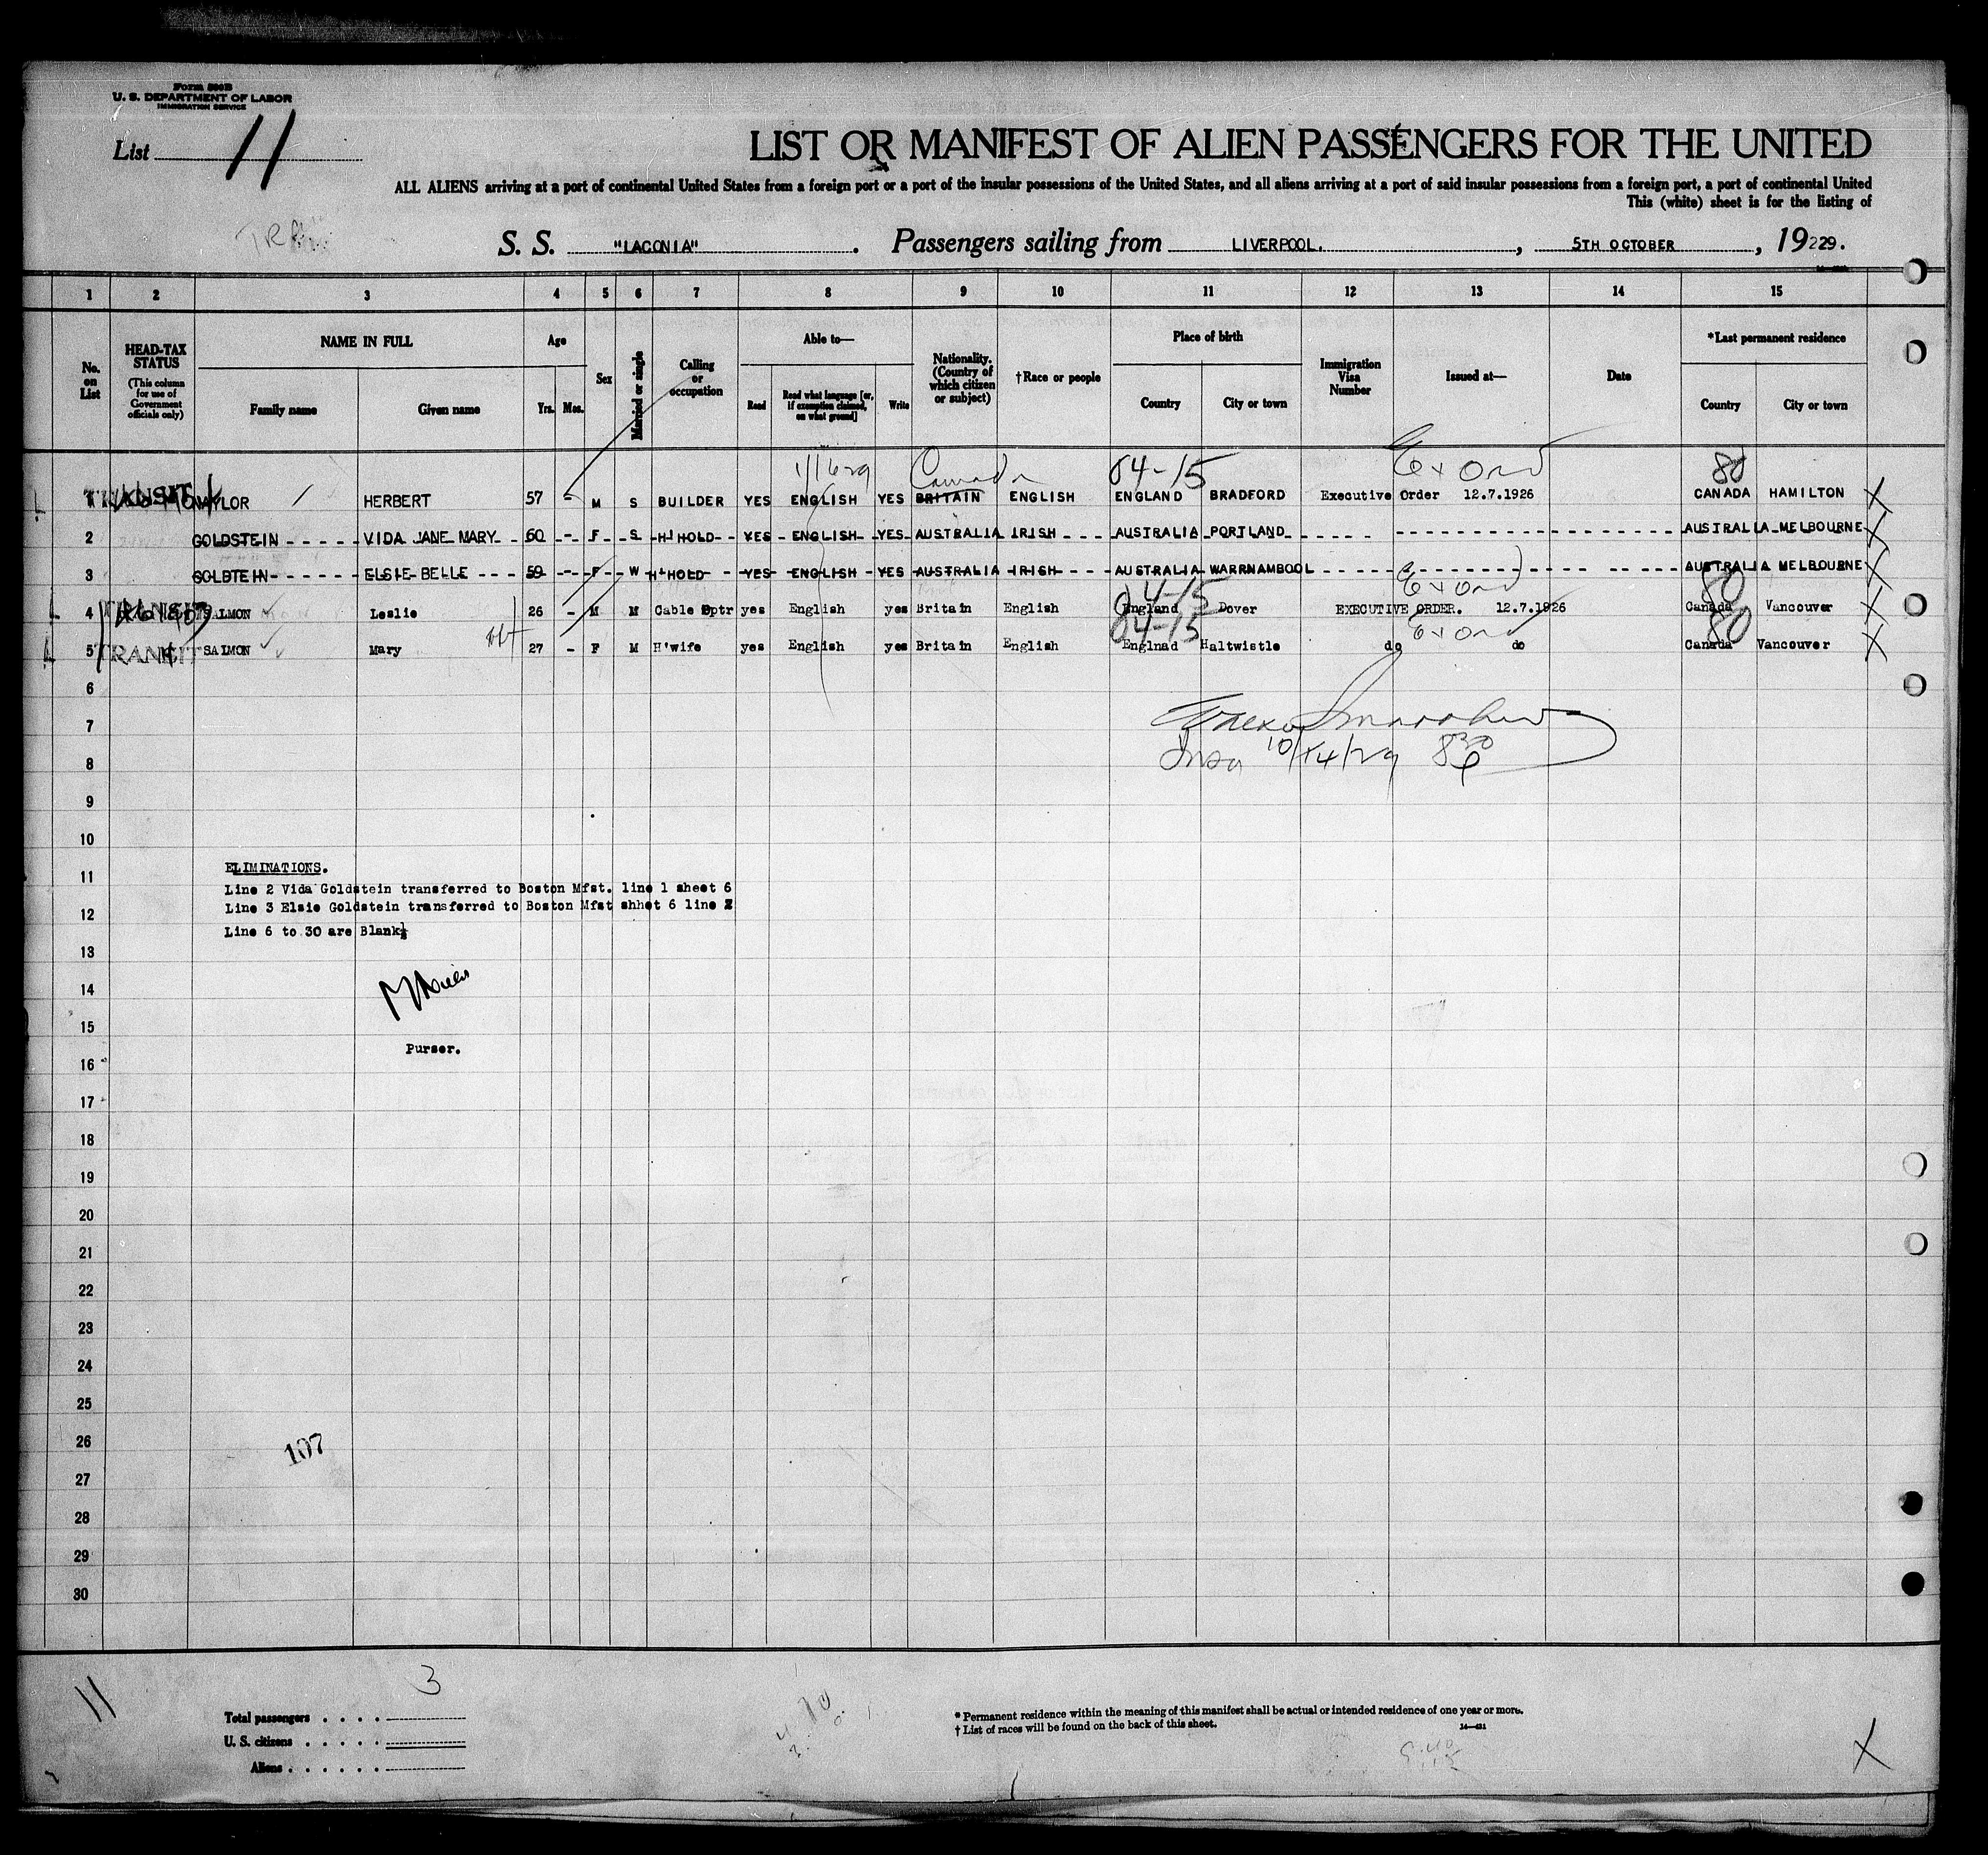 Form 500B
U. S. DEPARTMENT OF LABOR
IMMIGRATION SERVICE
List 11
LIST OR MANIFEST OF ALIEN PASSENGERS FOR THE UNITED
ALL ALIENS arriving at a port of continental United States from a foreign port or a port of the insular possessions of the United States, and all aliens arriving at a port of said insular possessions from a foreign port, a port of continental United
This (white) sheet is for the listing of
S. S. "LACONIA". Passengers sailing from LIVERPOOL. , 5TH OCTOBER , 19229.
1 2 3 4 5 6 7 8 9 10 11 12 13 14 15
No. on List
HEAD-TAX STATUS (This column for use of Government officials only)
NAME IN FULL
Family name Given name
Age
Yrs. Mos.
Sex
Married or single
Calling or occupation
Able to—
Read Read what language [or, if exemption claimed, on what ground] Write
Nationality. (Country of which citizen or subject)
†Race or people
Place of birth
Country City or town
Immigration Visa Number
Issued at—
Date
*Last permanent residence
Country City or town
Canada 64-15 Ex Ord 80
1 TRANSIT NAYLOR HERBERT 57 - M S BUILDER YES ENGLISH YES BRITAIN ENGLISH ENGLAND BRADFORD Executive Order 12.7.1926 CANADA HAMILTON X
2 GOLDSTEIN VIDA JANE MARY 60 - F S H'HOLD YES ENGLISH YES AUSTRALIA IRISH AUSTRALIA PORTLAND AUSTRALIA MELBOURNE X
3 GOLDTEIN ELSIE BELLE 59 - F W H'HOLD YES ENGLISH YES AUSTRALIA IRISH AUSTRALIA WARRNAMBOOL AUSTRALIA MELBOURNE X
64-15 Ex Ord 80
4 TRANSIT SALMON Leslie 26 - M M Cable Optr yes English yes Britain English England Dover EXECUTIVE ORDER. 12.7.1926 Canada Vancouver X
64-15 Ex Ord 80
5 TRANSIT SALMON Mary 27 - F M H'wife yes English yes Britain English Englnad Haltwistle do do Canada Vancouver X
6
7
10/14/29 830
8
9
10
ELIMINATIONS.
11
Line 2 Vida Goldstein transferred to Boston Mfst. line 1 sheet 6
Line 3 Elsie Goldstein transferred to Boston Mfst shhet 6 line 2
12
Line 6 to 30 are Blank
13
14
15
Purser.
16
17
18
19
20
21
22
23
24
25
26
107
27
28
29
30
11
3
Total passengers . . . .
U. S. citizens . . . . .
Aliens . . . . . .
* Permanent residence within the meaning of this manifest shall be actual or intended residence of one year or more.
† List of races will be found on the back of this sheet.
14—421
X